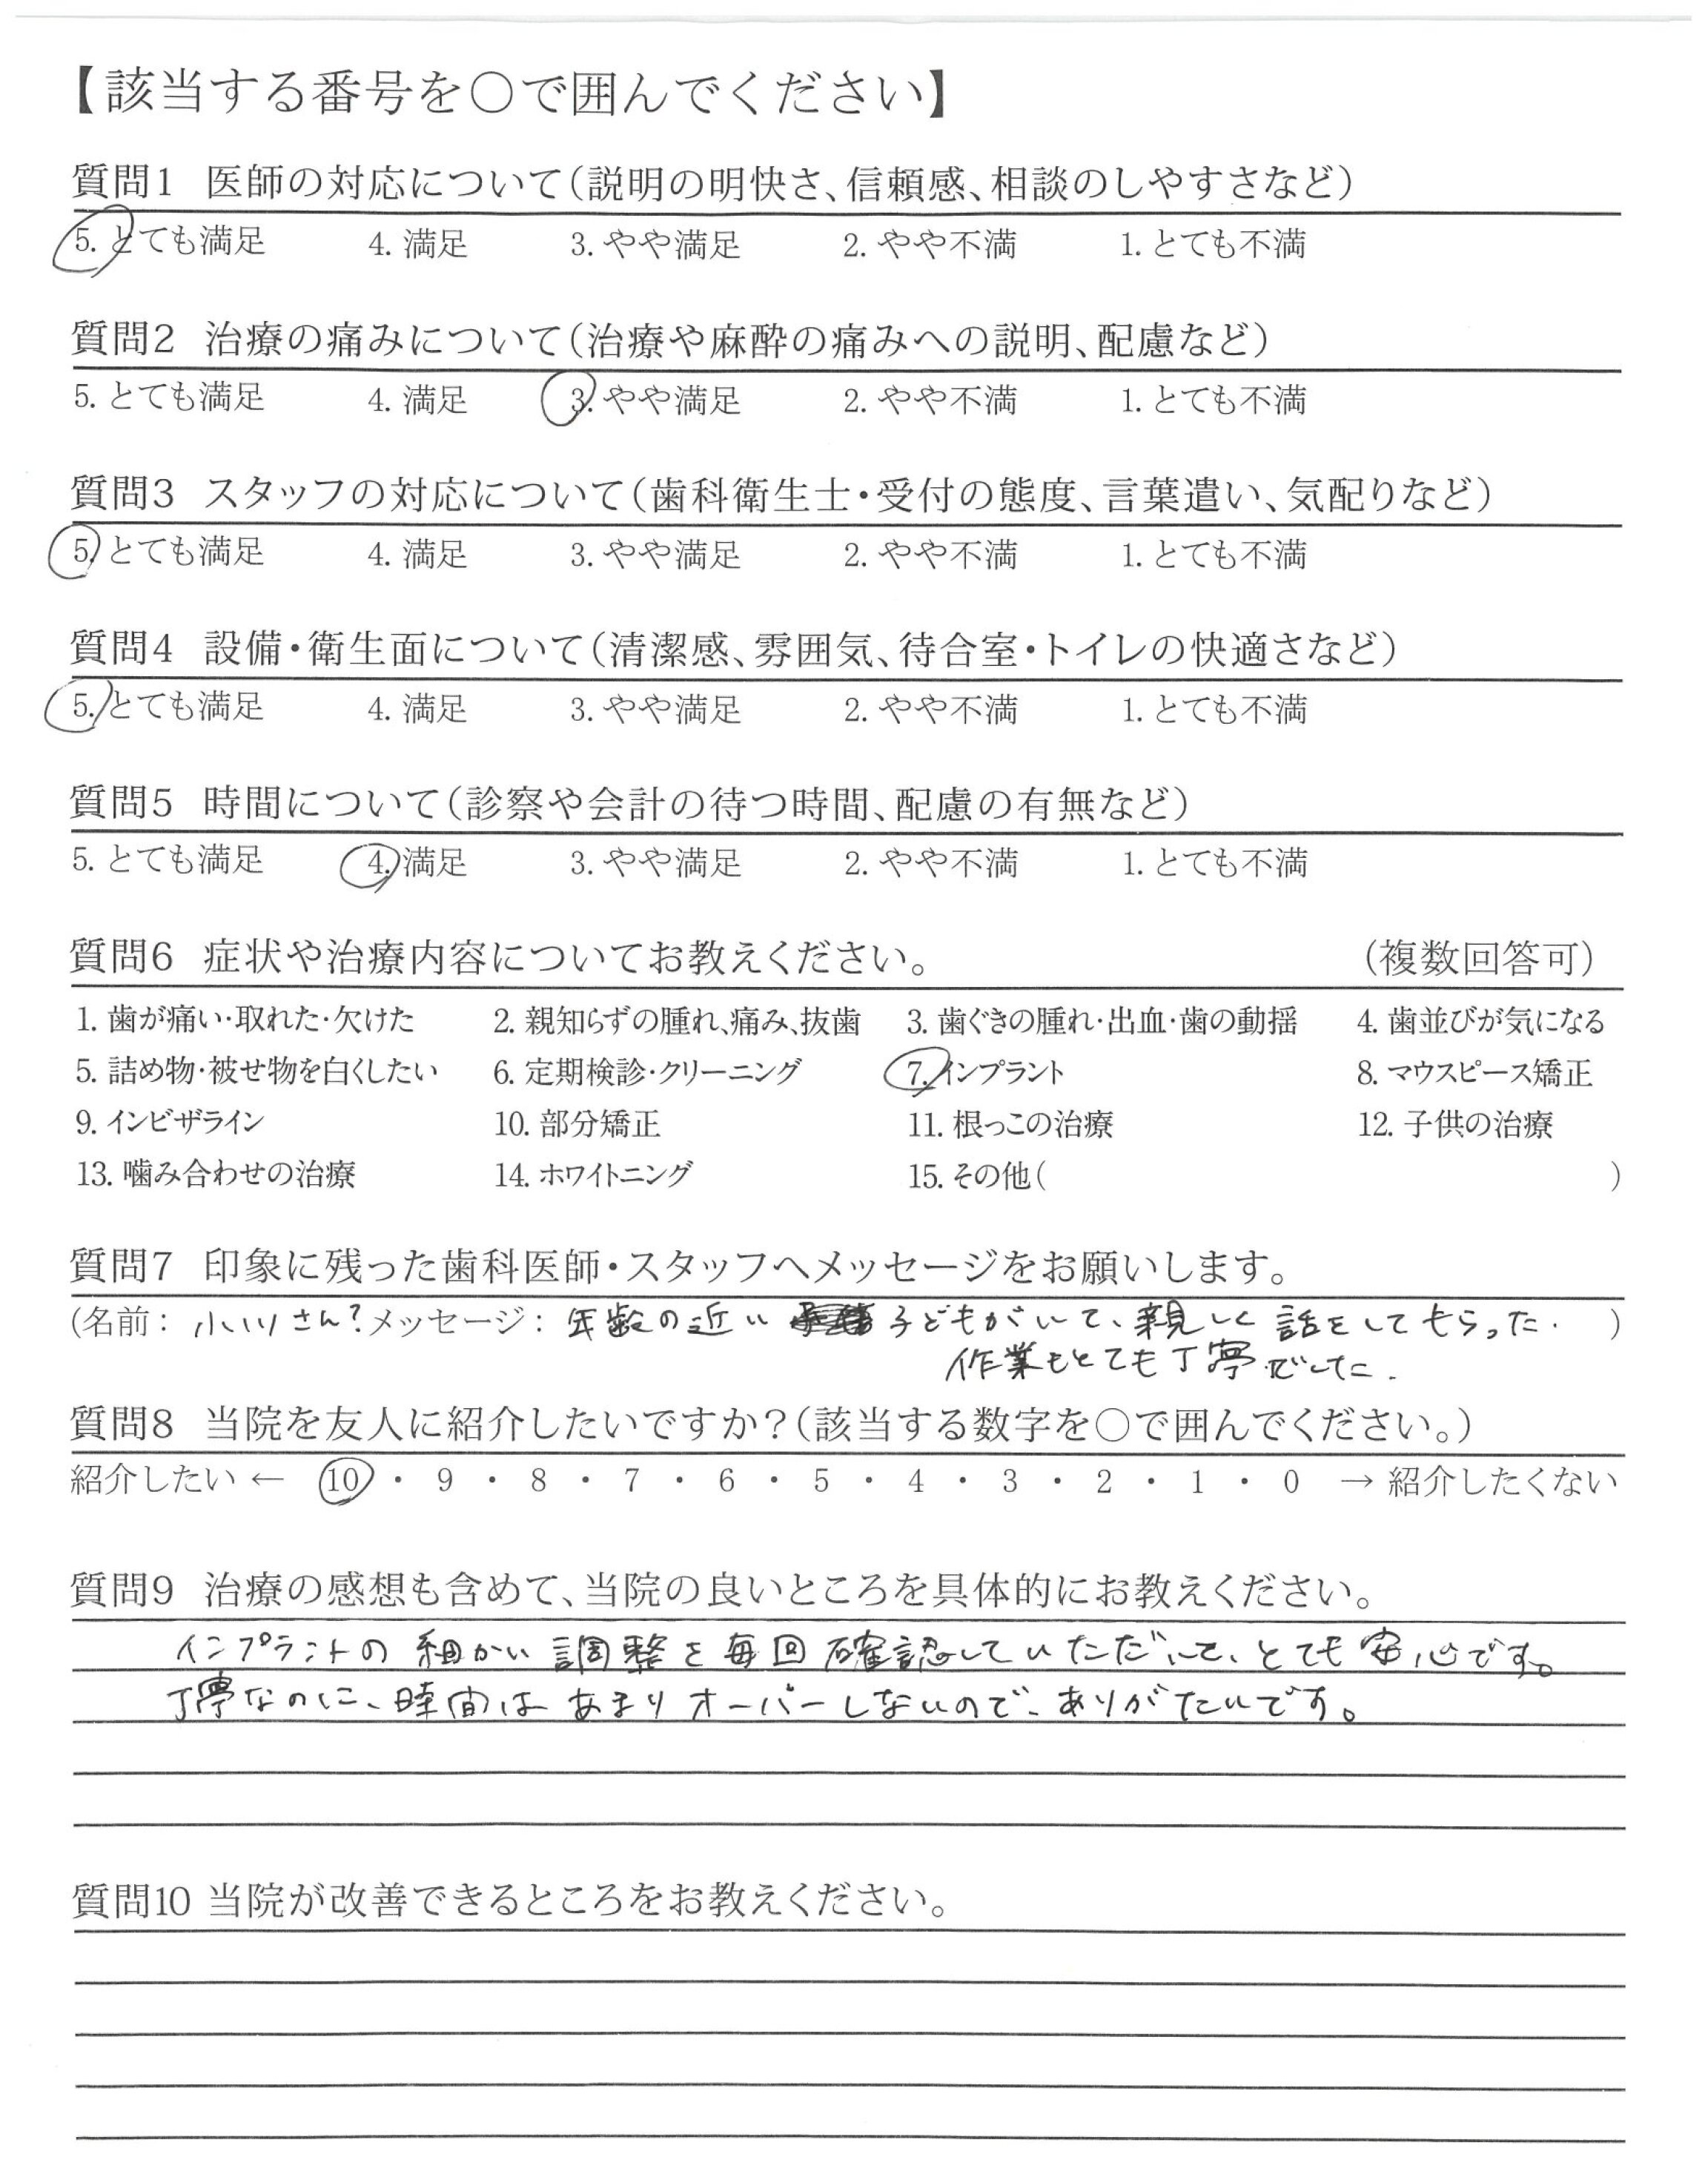 【該当する番号を○で囲んでください】
質問1 医師の対応について(説明の明快さ、信頼感、相談のしやすさなど)
5. とても満足 4. 満足 3. やや満足 2. やや不満 1. とても不満
質問2 治療の痛みについて(治療や麻酔の痛みへの説明、配慮など)
5. とても満足 4. 満足 3. やや満足 2. やや不満 1. とても不満
質問3 スタッフの対応について(歯科衛生士・受付の態度、言葉遣い、気配りなど)
5. とても満足 4. 満足 3. やや満足 2. やや不満 1. とても不満
質問4 設備・衛生面について(清潔感、雰囲気、待合室・トイレの快適さなど)
5. とても満足 4. 満足 3. やや満足 2. やや不満 1. とても不満
質問5 時間について(診察や会計の待つ時間、配慮の有無など)
5. とても満足 4. 満足 3. やや満足 2. やや不満 1. とても不満
質問6 症状や治療内容についてお教えください。 (複数回答可)
1. 歯が痛い・取れた・欠けた 2. 親知らずの腫れ、痛み、抜歯 3. 歯ぐきの腫れ・出血・歯の動揺 4. 歯並びが気になる
5. 詰め物・被せ物を白くしたい 6. 定期検診・クリーニング 7. インプラント 8. マウスピース矯正
9. インビザライン 10. 部分矯正 11. 根っこの治療 12. 子供の治療
13. 噛み合わせの治療 14. ホワイトニング 15. その他( )
質問7 印象に残った歯科医師・スタッフへメッセージをお願いします。
(名前: 小川さん? メッセージ: 年齢の近い 子どもがいて、親しく 話をしてもらった. )
作業もとても丁寧でした.
質問8 当院を友人に紹介したいですか?(該当する数字を○で囲んでください。)
紹介したい ← 10 ・ 9 ・ 8 ・ 7 ・ 6 ・ 5 ・ 4 ・ 3 ・ 2 ・ 1 ・ 0 → 紹介したくない
質問9 治療の感想も含めて、当院の良いところを具体的にお教えください。
インプラントの 細かい 調整を 毎回 確認していただいて、とても 安心です。
丁寧なのに、時間は あまり オーバーしないので、ありがたいです。
質問10 当院が改善できるところをお教えください。